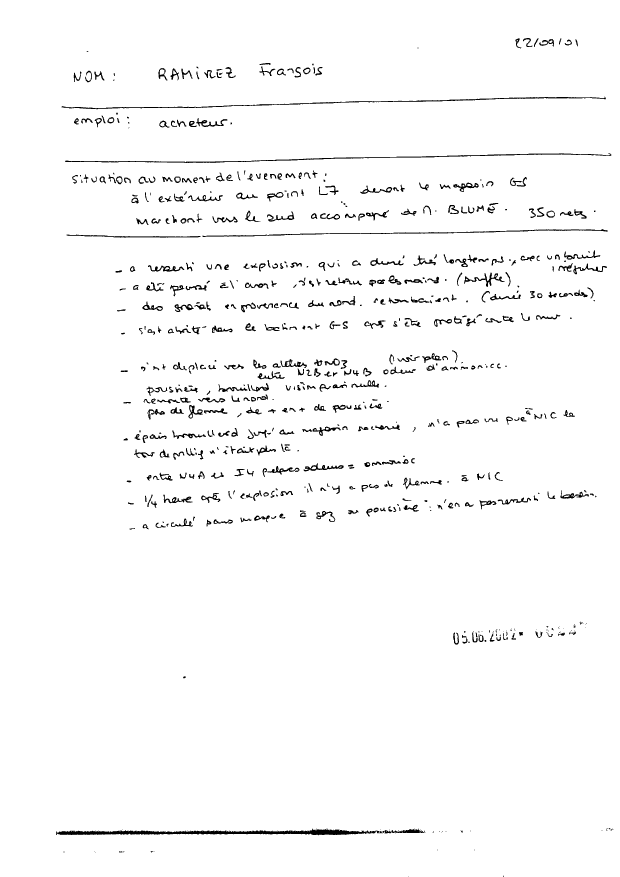 22/09/01
NOM : RAMIREZ François
emploi : acheteur.
situation au moment de l'évenement :
à l'extérieur au point L7 devant le magasin GS
marchant vers le sud accompagné de M. BLUME. 350 mets.
- a ressenti une explosion qui a duré très longtemps, avec un bruit
irrégulier
- a été poussé à l'avant, s'est retenu par les mains. (souffle)
- des gravat en provenence du nord retombaient. (durée 30 secondes)
- s'est abrité dans le batiment GS après s'être protégé contre le mur.
- s'est deplacé vers les ateliers (voir plan)
entre N2B et N4B odeur d'ammoniac
poussière, brouillard vision nulle.
- remonte vers le nord.
pas de flamme, de + en + de poussière
- épais brouillard jusqu'au magasin, n'a pas vu N1C la
tour de prilling n'était plus là.
- entre N4A et I4 odeur ammoniac
- 1/4 heure après l'explosion il n'y a pas de flamme à N1C
- a circulé sans masque à gaz ou poussière : n'en a pas ressenti le besoin.
05.06.2002